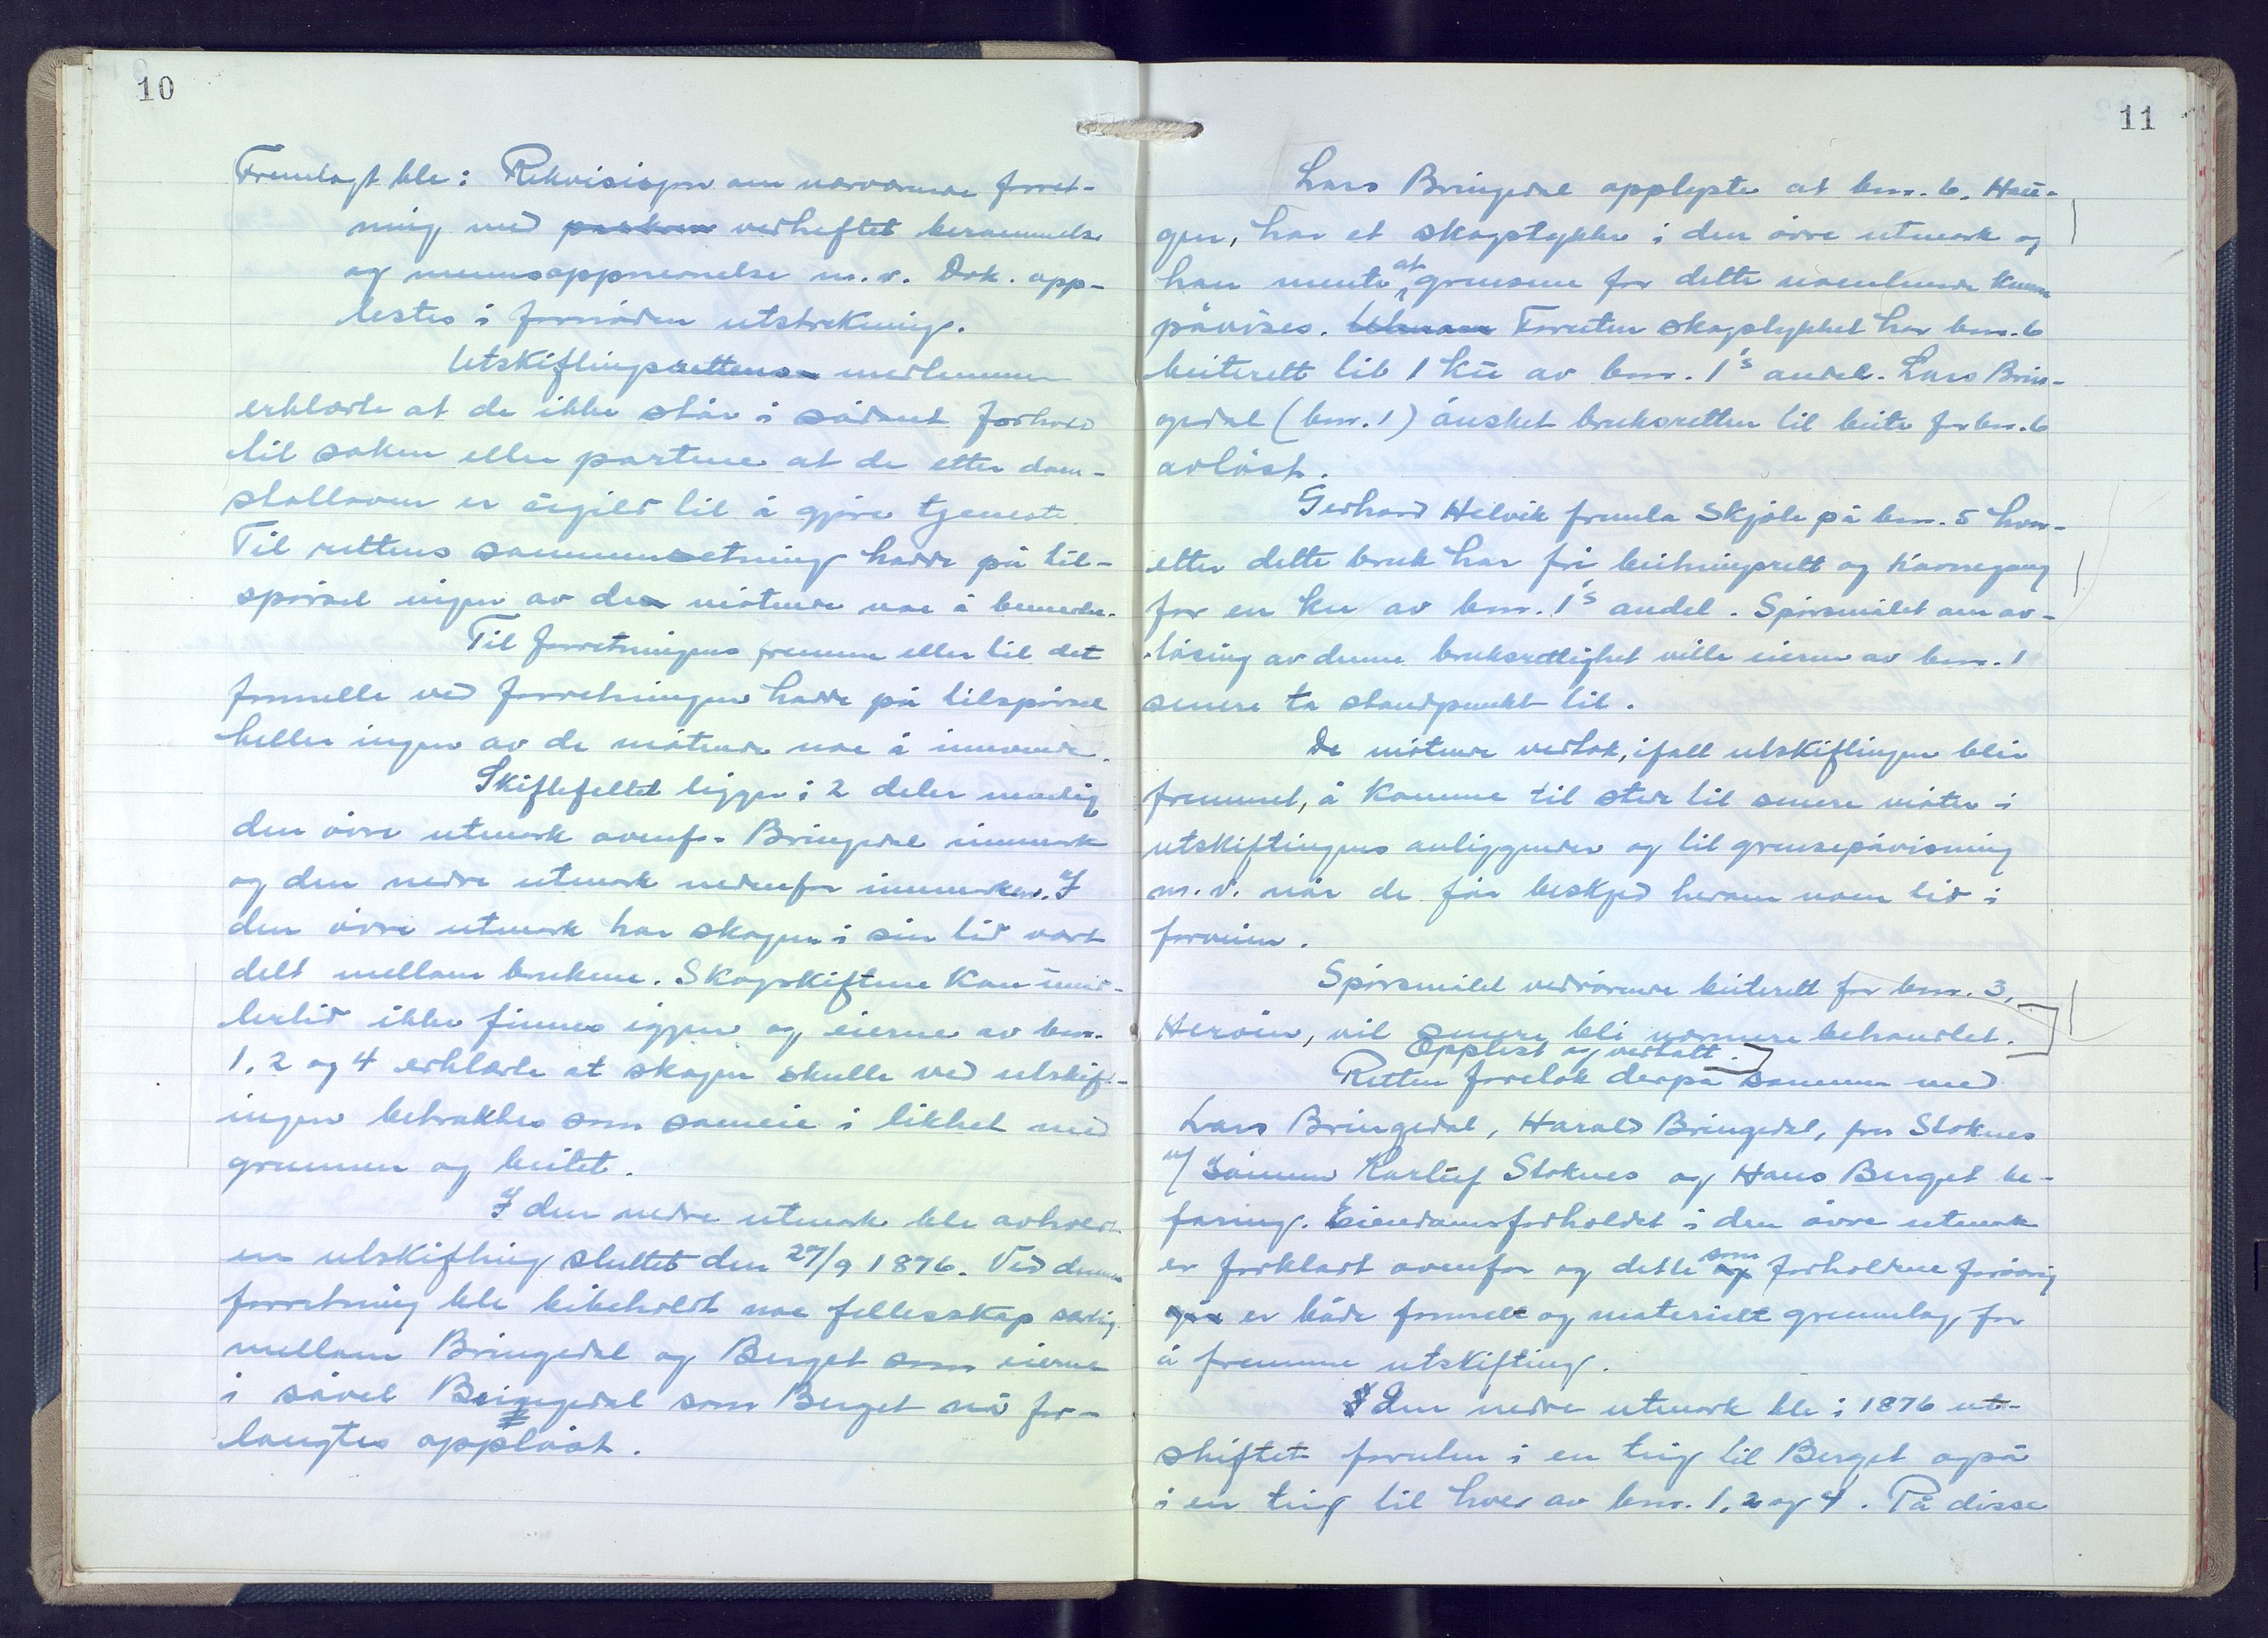 10
Fremlagt ble: Rekvisisjon om nærværende forret-
ning med vedheftet berammelse
og mennsoppnevnelse m.v. Dok. opp-
lestes i fornøden utstrekning.
Utskiftingsrettens medlemmer
erklærte at de ikke står i sådant forhold
til saken eller partene at de etter dom-
stolloven er ugild til å gjøre tjeneste
Til rettens sammensetning hadde på til-
spørsel ingen av de møtende noe å bemerke.
Til forretningens fremme eller til det
formelle ved forretningen hadde på tilspørsel
heller ingen av de møtende noe å innvende.
Skiftefeltet ligger i 2 deler nemlig
den øvre utmark ovenfr. Bringedal innmark
og den nedre utmark nedenfor innmarken. I
den øvre utmark har skogen i sin tid vært
delt mellom brukene. Skogskiftene kan imid-
lertid ikke finnes igjen og eierne av bnr.
1, 2 og 4 erklærte at skogen skulle ved utskift-
ingen betraktes som sameie i likhet med
grunnen og beitet.
I den nedre utmark ble avholdt
en utskifting sluttet den 27/9 1876. Ved denne
forretning ble bibeholdt noe fellesskap særlig
mellom Bringedal og Berget som eierne
i såvel Bringedal som Berget nå for-
langtes oppløst.
11
Lars Bringedal opplyste at bnr. 6. Hau-
gen, har et skogstykke i den øvre utmark og
han mente at grensene for dette noenlunde kunne
påvises. Foruten skogstykket har bnr. 6
beiterett til 1 ku av bnr. 1's andel. Lars Brin-
gedal (bnr. 1) ønsket bruksretten til beite for bnr. 6
avløst.
Gerhard Helvik fremla Skjøte på bnr. 5 hvor-
etter dette bruk har fri beitningsrett og havnegang
for en ku av bnr. 1's andel. Spørsmålet om av-
løsing av denne bruksrettighet ville eieren av bnr. 1
senere ta standpunkt til.
De møtende vedtok, ifall utskiftingen blir
fremmet, å komme til stede til senere møter i
utskiftingens anliggender og til grensepåvisning
m.v. når de får beskjed herom noen tid i
forveien.
Spørsmålet vedrørende beiterett for bnr. 3,
Hervin, vil senere bli nærmere behandlet.
Opplest og vedtatt.
Retten foretok derpå sammen med
Lars Bringedal, Harald Bringedal, fru Stoknes
v/ sønnen Karluf Stoknes og Hans Berget be-
faring. Eiendomsforholdet i den øvre utmark
er forklart ovenfor og dette som forholdene forøvrig
gir er både formelt og materielt grunnlag for
å fremme utskifting.
I den nedre utmark ble i 1876 ut-
skiftet foruten i en teig til Berget også
i en teig til hver av bnr. 1, 2 og 4. På disse